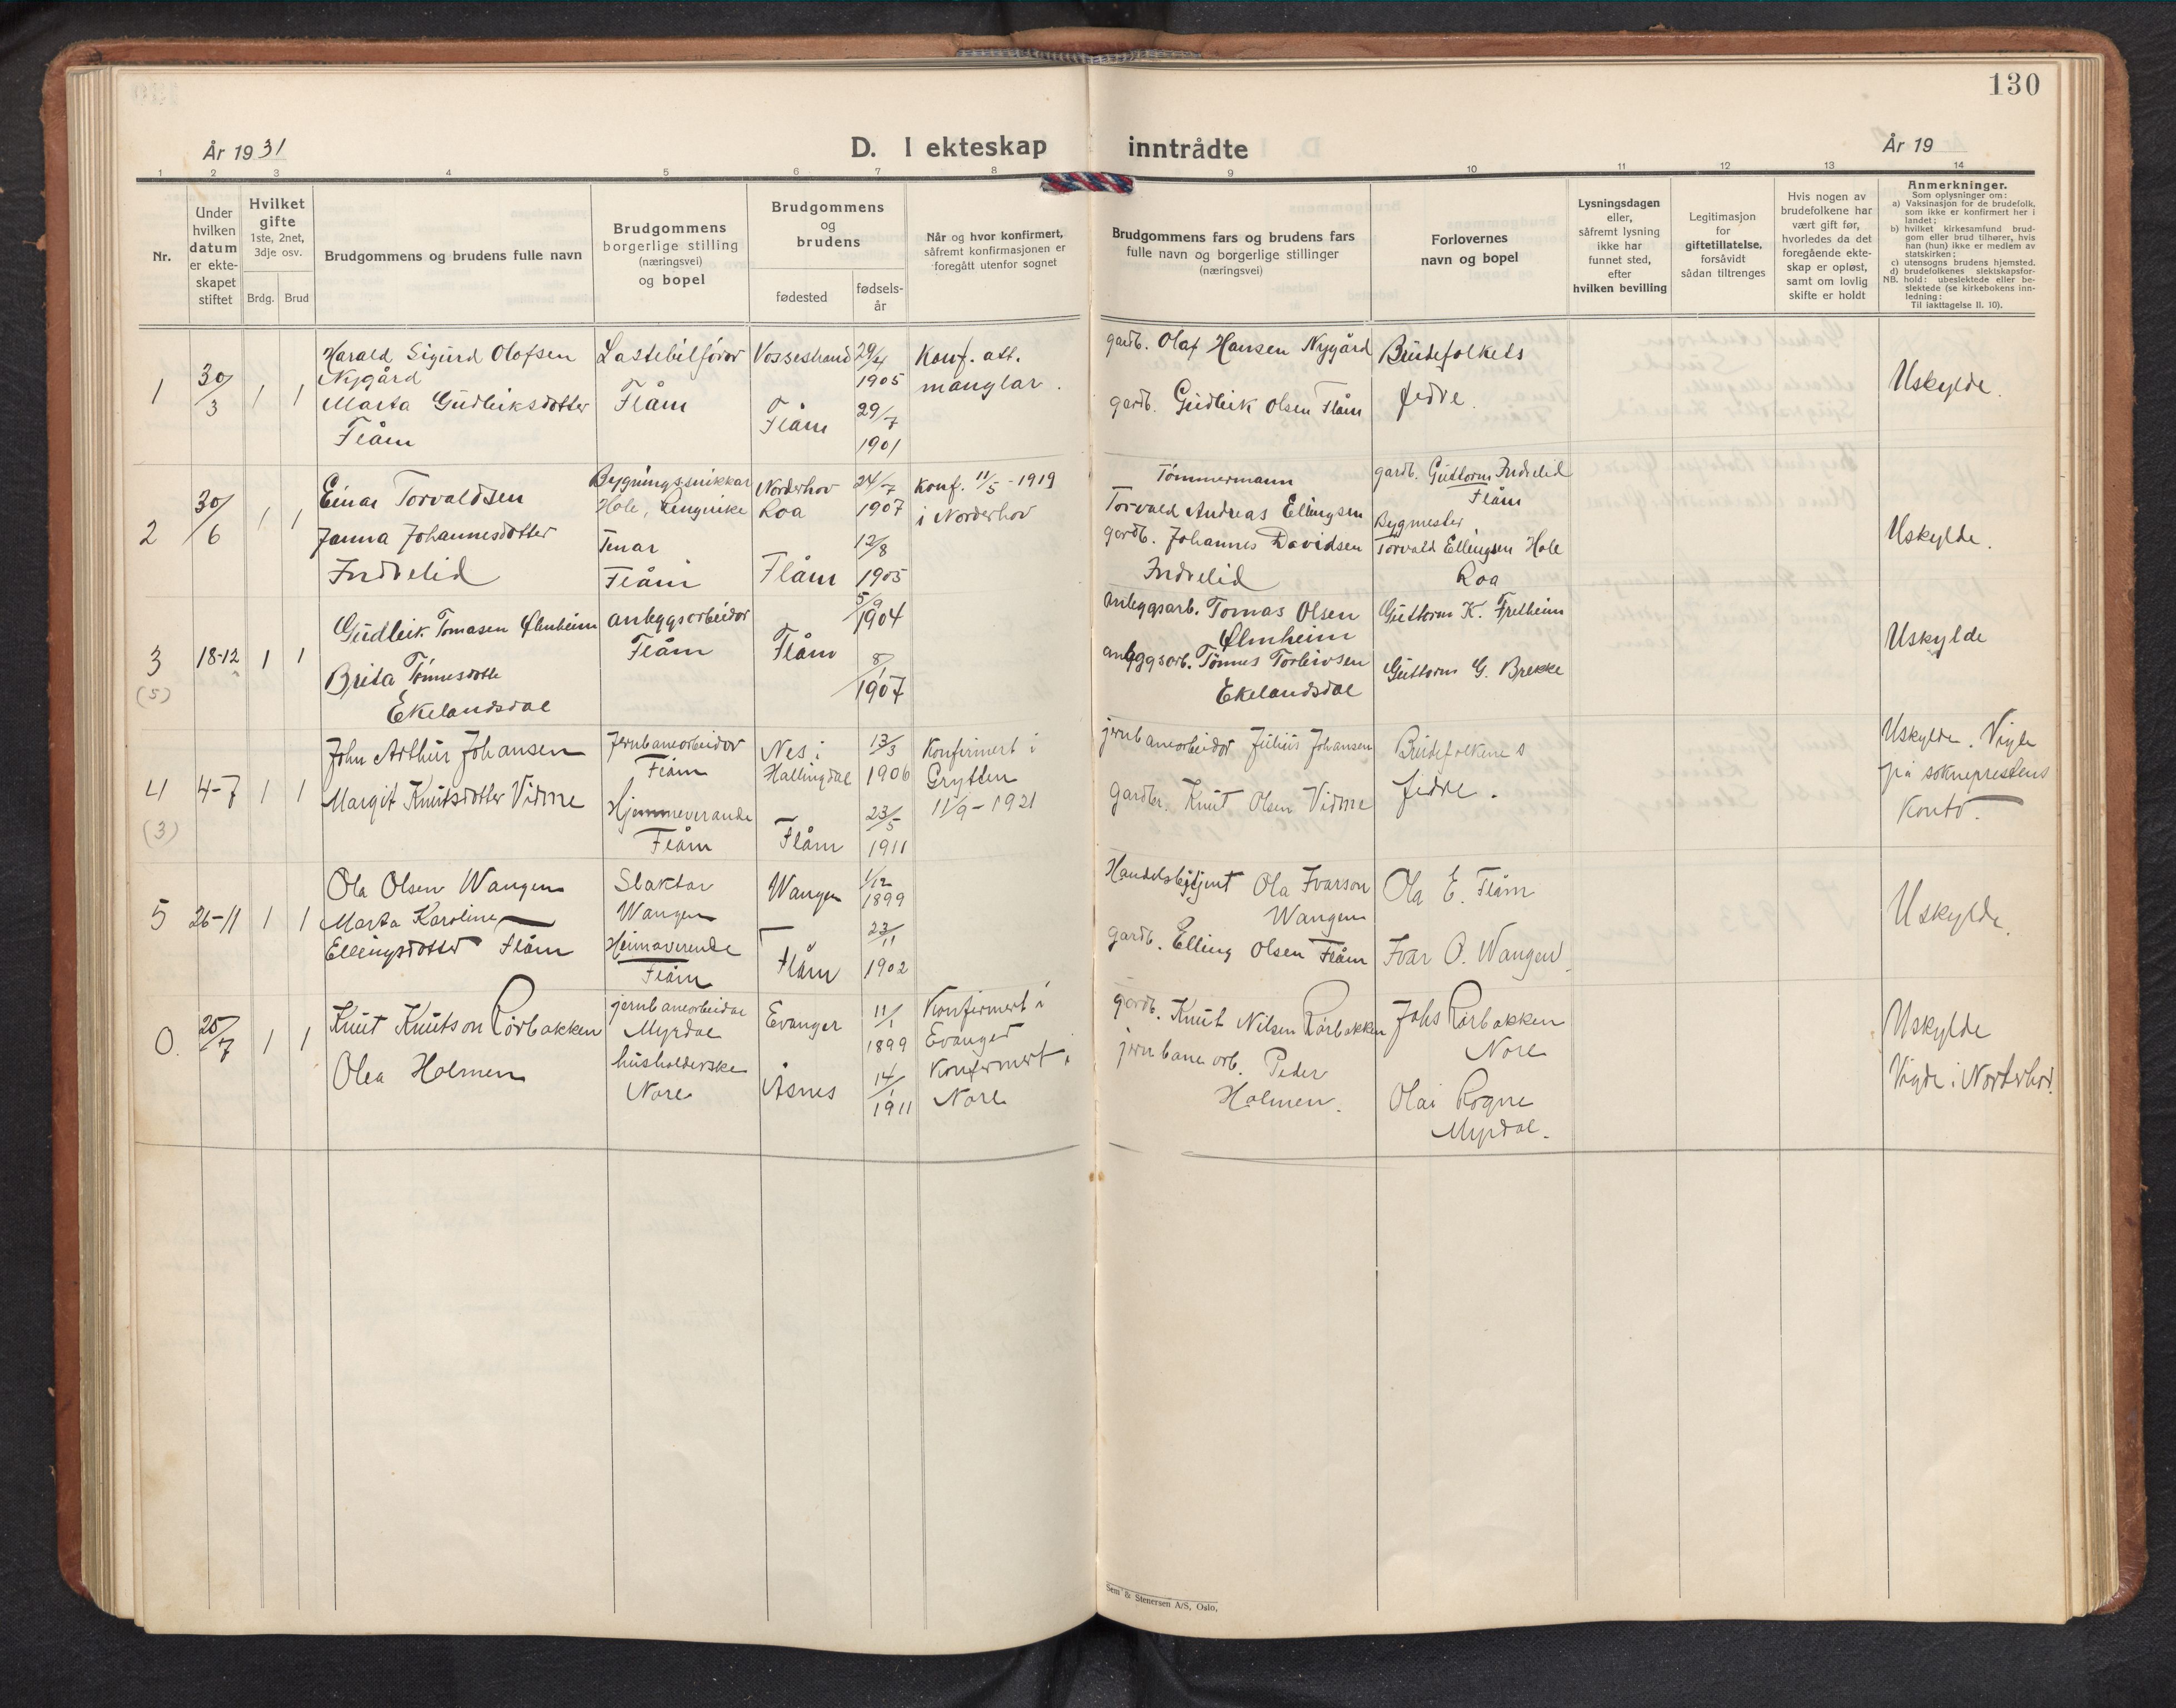 130
År 1931
D. I ekteskap inntrådte
År 19
1 2 3 4 5 6 7 8 9 10 11 12 13 14
Nr.
Under
hvilken
datum
er ekte-
skapet
stiftet
Hvilket
gifte
1ste, 2net,
3dje osv.
Brdg. Brud
Brudgommens og brudens fulle navn
Brudgommens
borgerlige stilling
(næringsvei)
og bopel
Brudgommens
og
brudens
fødested
fødsels-
år
Når og hvor konfirmert,
såfremt konfirmasjonen er
foregått utenfor sognet
Brudgommens fars og brudens fars
fulle navn og borgerlige stillinger
(næringsvei)
Forlovernes
navn og bopel
Lysningsdagen
eller,
såfremt lysning
ikke har
funnet sted,
efter
hvilken bevilling
Legitimasjon
for
giftetillatelse,
forsåvidt
sådan tiltrenges
Hvis nogen av
brudefolkene har
vært gift før,
hvorledes da det
foregående ekte-
skap er opløst,
samt om lovlig
skifte er holdt
Anmerkninger.
Som oplysninger om:
a) Vaksinasjon for de brudefolk,
som ikke er konfirmert her i
landet;
b) hvilket kirkesamfund brud-
gom eller brud tilhører, hvis
han (hun) ikke er medlem av
statskirken;
c) utensogns brudens hjemsted.
d) brudefolkenes slektskapsfor-
NB. hold: ubeslektede eller be-
slektede (se kirkebokens inn-
ledning:
Til iakttagelse II. 10).
1
30/3
1 1
Harald Sigurd Olafsen
Nygård
Marta Gudleiksdotter
Flåm
Lastebilførar
Flåm
Vossestrand
Flåm
29/4
1905
29/7
1901
Konf. att.
manglar.
gardb. Olaf Hansen Nygård
gardb. Gudleik Olsen Flåm
Brudefolkets
fedre.
Uskylde.
2
30/6
1 1
Einar Torvaldsen
Janna Johannesdotter
Indrelid
Bygningssnikkar
Hole, Ringirike
Tenar
Flåm
Norderhov
Roa
Flåm
24/7
1907
12/8
1905
Konf. 11/5 - 1919
i Norderhov
Tømmermann
Torvald Andreas Ellingsen
gardb. Johannes Davidsen
Indrelid
gardb. Guttorm Indrelid
Flåm
Bygmester
Torvald Ellingsen Hole
Roa
Uskylde.
3
(5)
18-12
1 1
Gudleik Tomasen Ølmheim
Brita Tønnesdotte
Ekelandsdal
anleggsarbeidar
Flåm
Flåm
5/9
1904
8/1
1907
anleggsarb. Tomas Olsen
Ølmheim
anleggsarb. Tønnes Torbiensen
Ekelandsdal
Guttorm K. Fretheim
Guttorm G. Brekke
Uskylde
4
(3)
4-7
1 1
John Arthur Johansen
Margit Knutsdotter Vidme
Jernbanearbeidar
Flåm
Hjemmeverande
Flåm
Nes i
Hallingdal
Flåm
13/3
1906
23/5
1911
Konfirmert i
Grytten
11/9 - 1921
jernbanearbeidar Julius Johansen
gardbr. Knut Olsen Vidme
Brudefolkenes
fedre.
Uskylde. Vigde
på sokneprestens
kontor.
5
26-11
1 1
Ola Olsen Wangen
Marta Karoline
Ellingsdotter Flåm
Slaktar
Wangen
Heimaverende
Flåm
Wangen
Flåm
1/12
1899
23/11
1902
Handelsbetjent Ola Ivarson
Wangen
gardb. Elling Olsen Flåm
Ola E. Flåm
Ivar O. Wangen.
Uskylde.
0.
25/7
1 1
Knut Knutson Rørbakken
Olea Holmen
jernbanearbeidar
Myrdal
husholderske
Nore
Evanger
Åsnes
11/1
1899
14/1
1911
Konfirmert i
Evanger
Konfirmert i
Nore
gardb. Knut Nilsen Rørbakken
jernbanearb. Peder
Holmen.
Johs Rørbakken
Nore
Olai Rogne
Myrdal.
Uskylde
Vigde i Norderhov.
Sem & Stenersen A/S, Oslo.